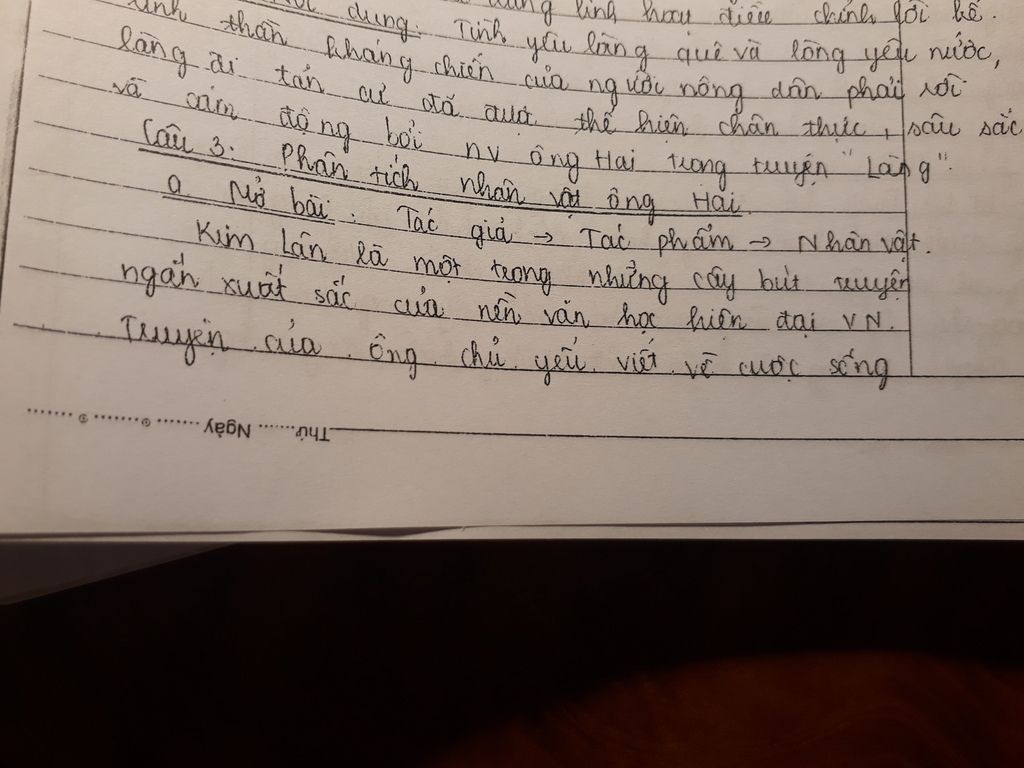 dụng linh hoạt điểu chỉnh lời kể.
dung: Tình yêu làng quê và lòng yêu nước,
tinh thần kháng chiến của người nông dân phải rời
làng đi tản cư đã được thể hiện chân thực, sâu sắc
và cảm động bởi NV ông Hai trong truyện "Làng".
Câu 3: Phân tích nhân vật ông Hai.
a Mở bài: Tác giả → Tác phẩm → Nhân vật.
Kim Lân là một trong những cây bút truyện
ngắn xuất sắc của nền văn học hiện đại VN.
Truyện của ông chủ yếu viết về cuộc sống
Thứ....... Ngày